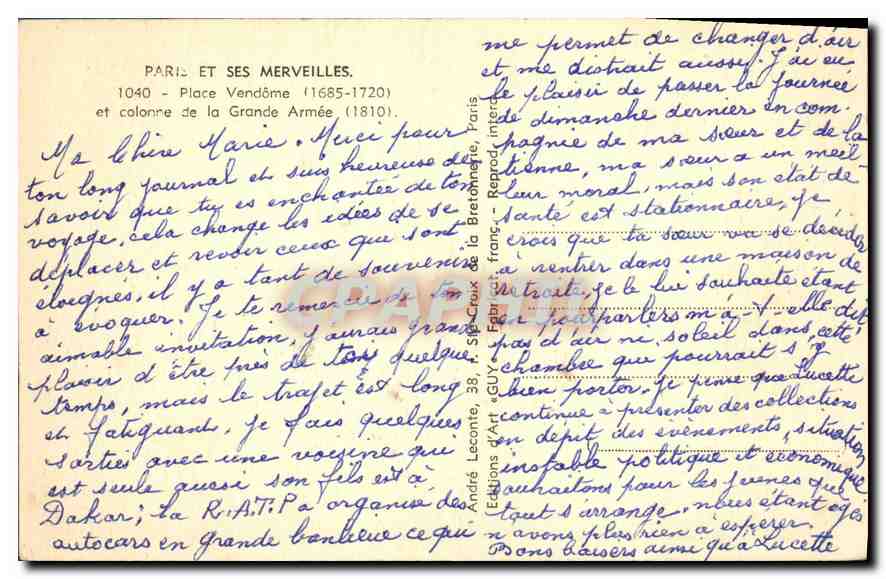 PARIS ET SES MERVEILLES.
1040 - Place Vendôme (1685-1720)
et colonne de la Grande Armée (1810).
Ma Chère Marie. Merci pour
ton long journal et suis heureuse de
savoir que tu es enchantée de ton
voyage, cela change les idées de se
déplacer et revoir ceux que sont
éloignés, il y a tant de souvenirs
à évoquer. Je te remercie de ton
aimable invitation, j'aurais grand
plaisir d'être près de toi quelque
temps, mais le trajet est long
et fatiguant, je fais quelques
sorties avec une voisine qui
est seule aussi son fils est à
Dakar; la R.A.T.P a organisé des
autocars en grande banlieue ce qui
André Leconte, 38, r. Ste-Croix de la Bretonnerie, Paris
(Editions d'Art «GUY» Fabricat. franç. - Reprod. interd.
me permet de changer d'air
et me distrait aussi. J'ai eu
le plaisir de passer la journée
de dimanche dernier en com-
pagnie de ma sœur et de la
tienne, ma sœur a un meil-
leur moral, mais son état de
santé est stationnaire, je
crois que ta sœur va se décider
à rentrer dans une maison de
retraite, je le lui souhaite étant
en pourparlers m'a-t-elle dit
pas d'air ni soleil dans cette
chambre que pourrait s'y
bien porter. je pense que Lucette
continue à présenter des collections
en dépit des évènements, situation
instable politique et économique
souhaitons pour les jeunes que
tout s'arrange, nous étant agés
n'avons plus rien à espérer.
Bons baisers ainsi qu'à Lucette
CPARAMA